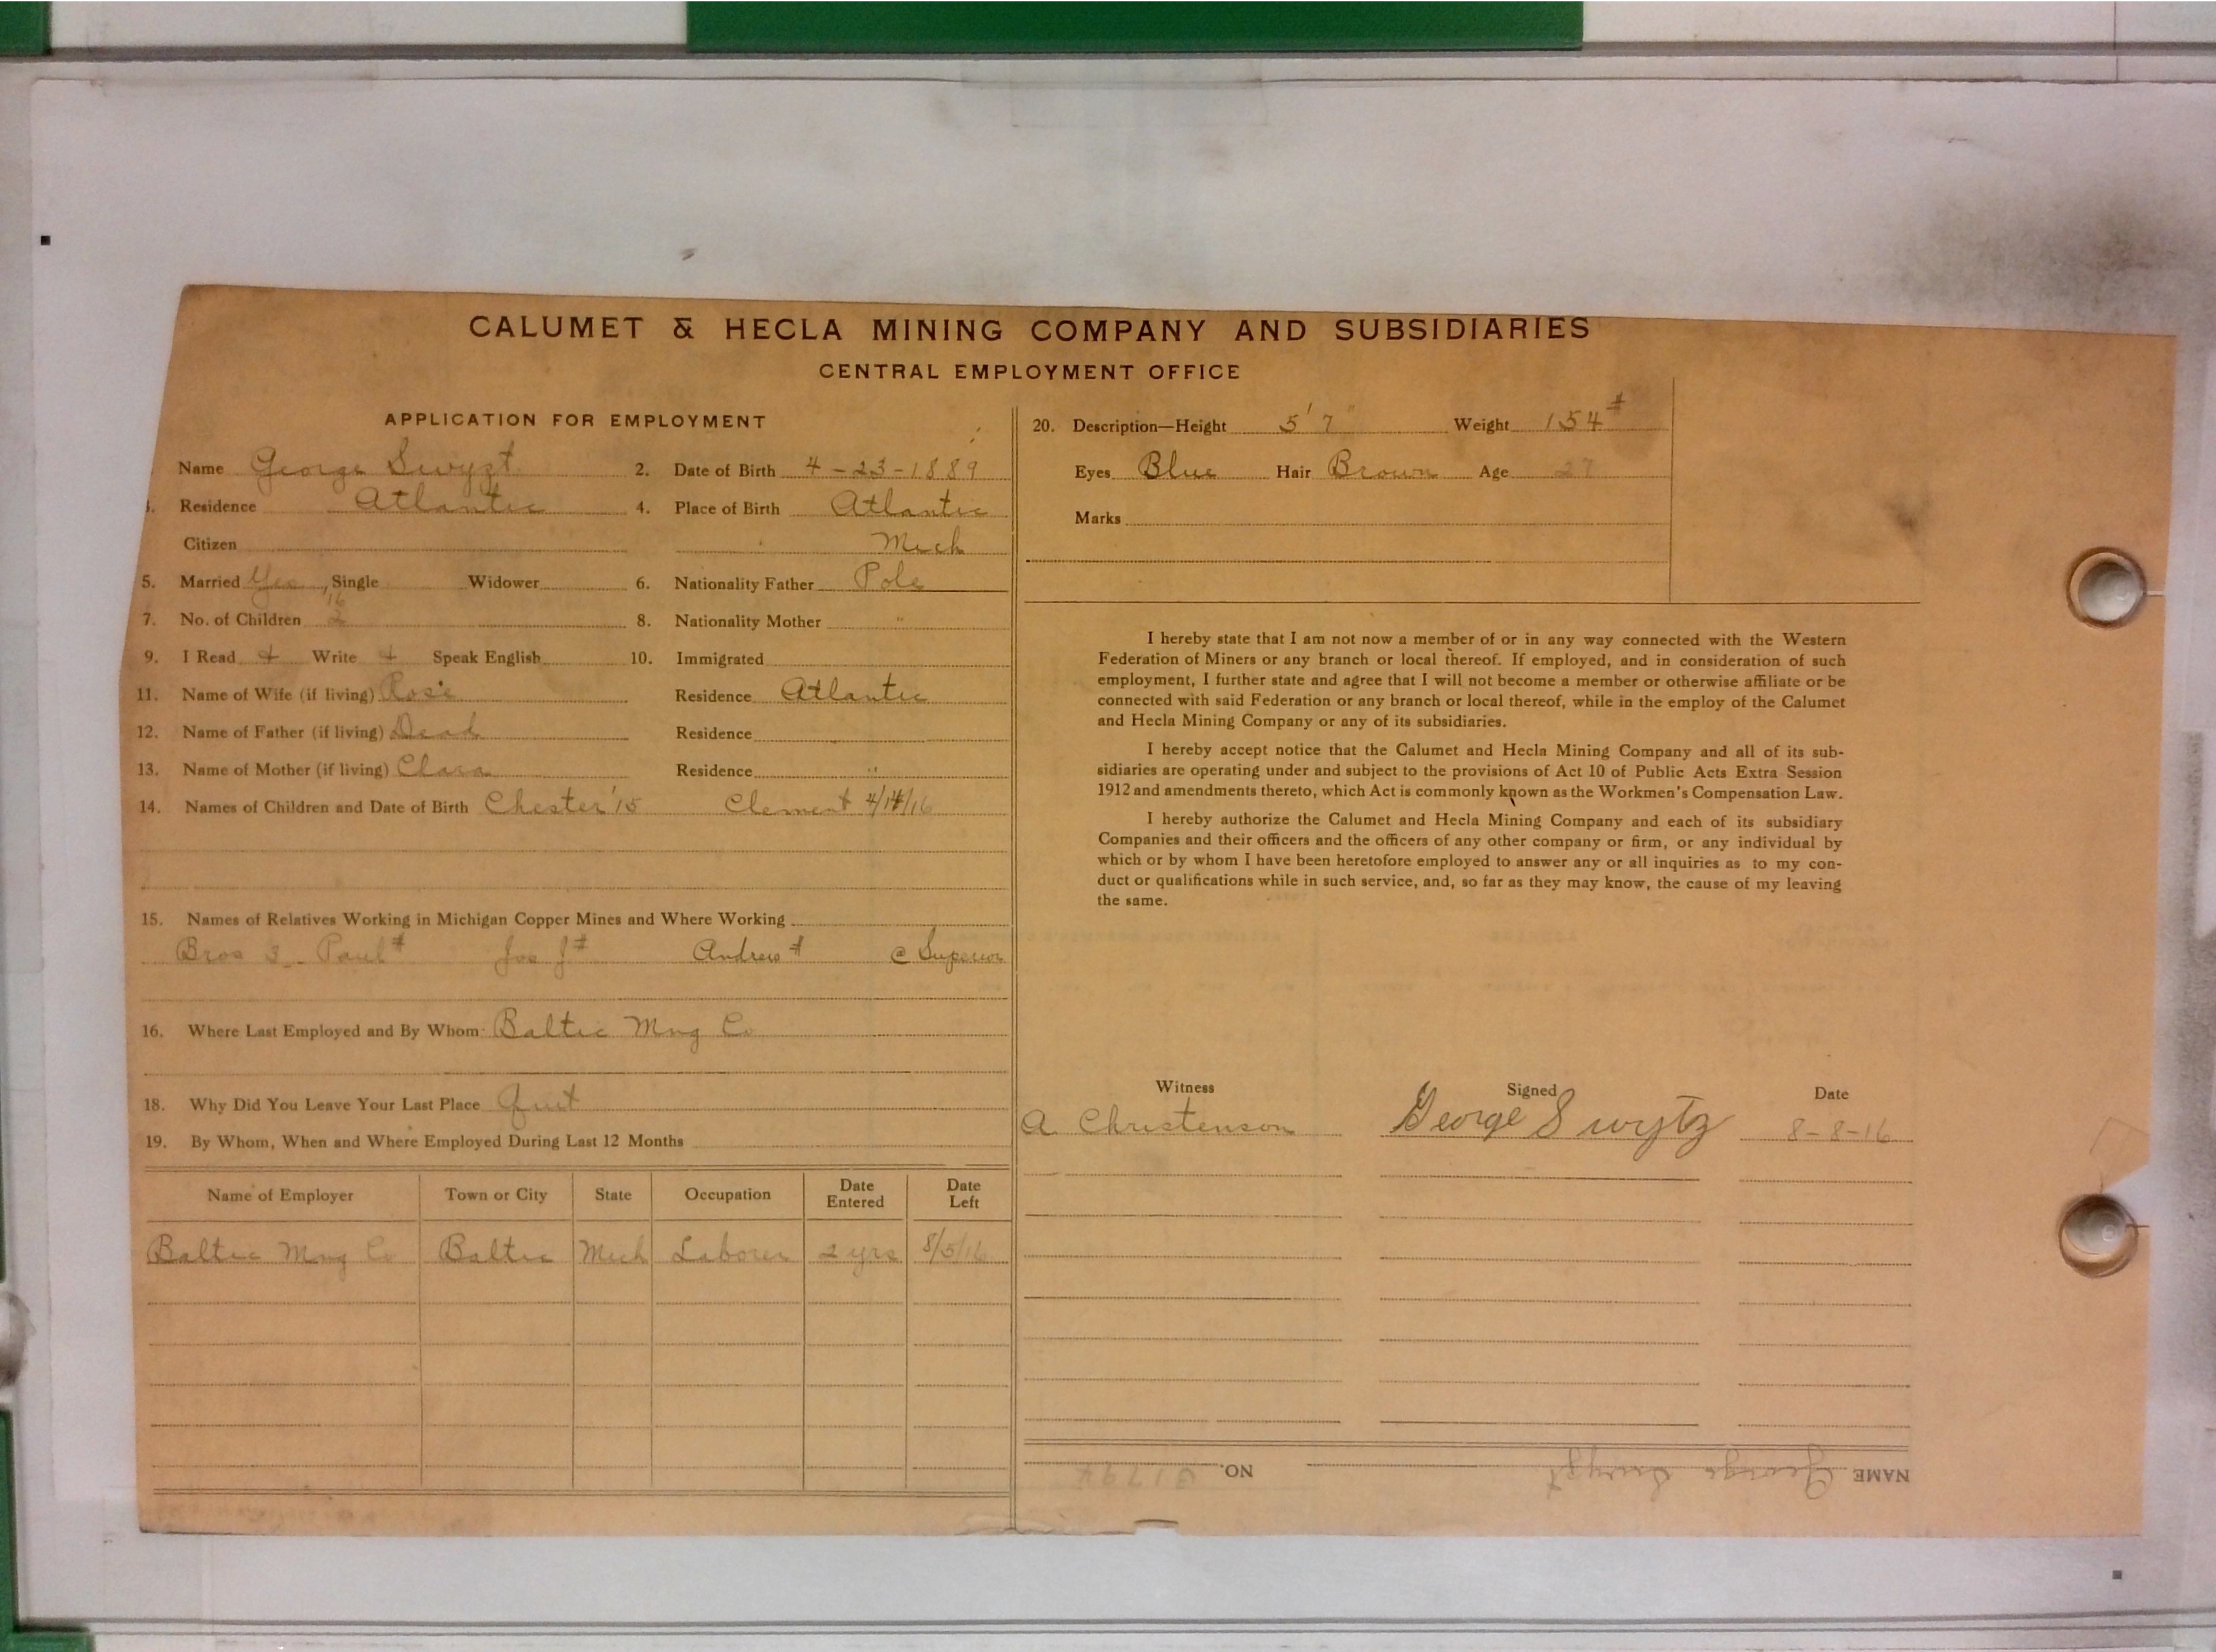 CALUMET & HECLA MINING COMPANY AND SUBSIDIARIES
CENTRAL EMPLOYMENT OFFICE
APPLICATION FOR EMPLOYMENT
Name George Swyzt 2. Date of Birth 4-23-1889
Residence Atlantic 4. Place of Birth Atlantic
Citizen Mich
5. Married Yes, Single Widower 6. Nationality Father Pole
16
7. No. of Children 2 8. Nationality Mother "
9. I Read + Write + Speak English 10. Immigrated
11. Name of Wife (if living) Rose Residence Atlantic
12. Name of Father (if living) Dead Residence
13. Name of Mother (if living) Clara Residence "
14. Names of Children and Date of Birth Chester '15 Clement 4/14/16
15. Names of Relatives Working in Michigan Copper Mines and Where Working
Bros 3 Paul # Jos J # Andrew # @ Superior
16. Where Last Employed and By Whom: Baltic Mng Co
18. Why Did You Leave Your Last Place Quit
19. By Whom, When and Where Employed During Last 12 Months
Name of Employer Town or City State Occupation Date Entered Date Left
Baltic Mng Co Baltic Mich Laborer 2 yrs 8/5/16
20. Description—Height 5' 7" Weight 154#
Eyes Blue Hair Brown Age 27
Marks
I hereby state that I am not now a member of or in any way connected with the Western
Federation of Miners or any branch or local thereof. If employed, and in consideration of such
employment, I further state and agree that I will not become a member or otherwise affiliate or be
connected with said Federation or any branch or local thereof, while in the employ of the Calumet
and Hecla Mining Company or any of its subsidiaries.
I hereby accept notice that the Calumet and Hecla Mining Company and all of its sub-
sidiaries are operating under and subject to the provisions of Act 10 of Public Acts Extra Session
1912 and amendments thereto, which Act is commonly known as the Workmen's Compensation Law.
I hereby authorize the Calumet and Hecla Mining Company and each of its subsidiary
Companies and their officers and the officers of any other company or firm, or any individual by
which or by whom I have been heretofore employed to answer any or all inquiries as to my con-
duct or qualifications while in such service, and, so far as they may know, the cause of my leaving
the same.
Witness Signed Date
A Christenson George Swytz 8-8-16
NAME George Swyzt NO.